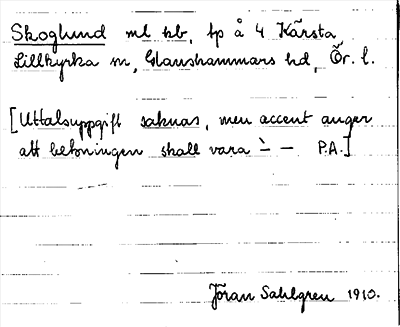 Skoglund ml hb, tp å 4 Kärsta,
Lillkyrka sn, Glanshammars hd, Ör. l.
[Uttalsuppgift saknas, men accent anger
att betoningen skall vara `- - P.A.]
Jöran Sahlgren 1910.